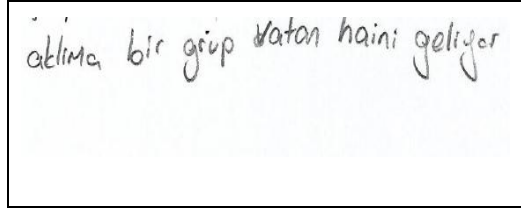 aklıma bir grup vatan haini geliyor